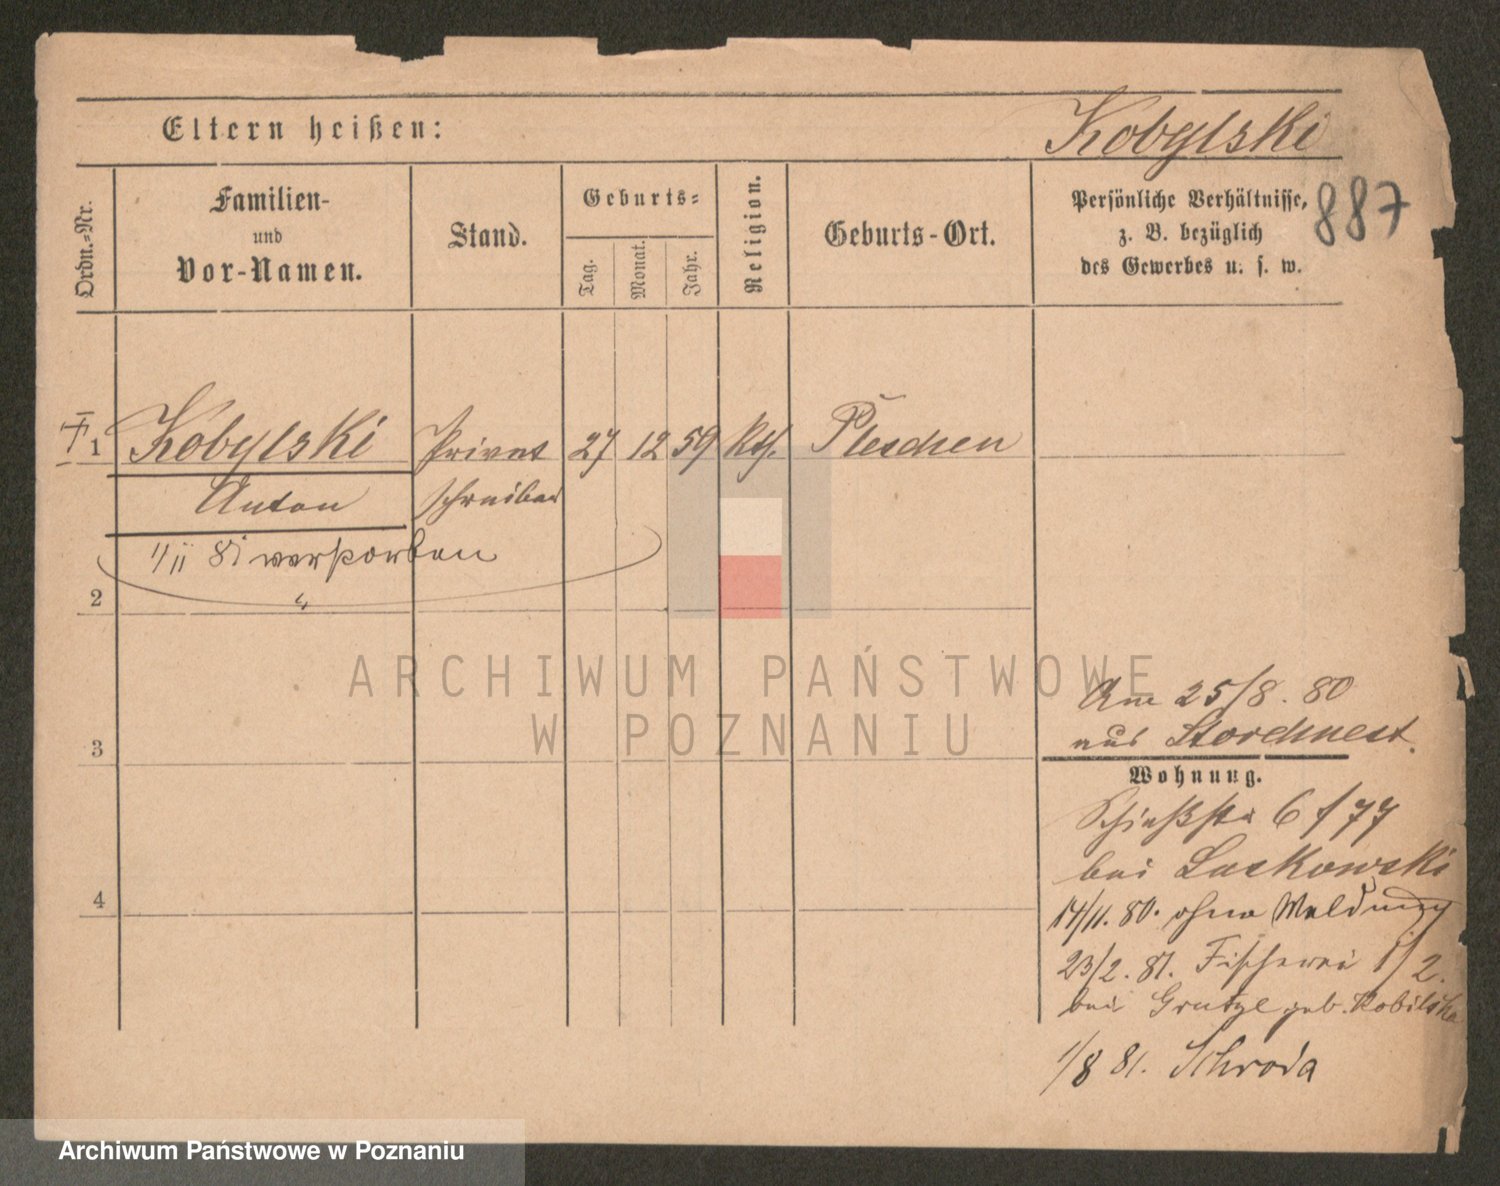 Eltern heißen:
Kobylski
Ordn.-Nr.
Familien-
und
Vor-Namen.
Stand.
Geburts-
Tag.
Monat.
Jahr.
Religion.
Geburts-Ort.
Persönliche Verhältnisse,
z. B. bezüglich
des Gewerbes u. s. w.
887
1 Kobylski Privat 27 12 59 kth. Pleschen
Anton schreiber
1/11 81 verstorben
2
3
4
Am 25/8. 80
aus Storchnest.
Wohnung.
Schießstr 6 f 77
bei Laskowski
14/11. 80. ohne Meldung
23/2. 81. Fischerei 1/2.
bei geb. Kobilska
1/8 81. Schroda
ARCHIWUM PAŃSTWOWE
W POZNANIU
Archiwum Państwowe w Poznaniu